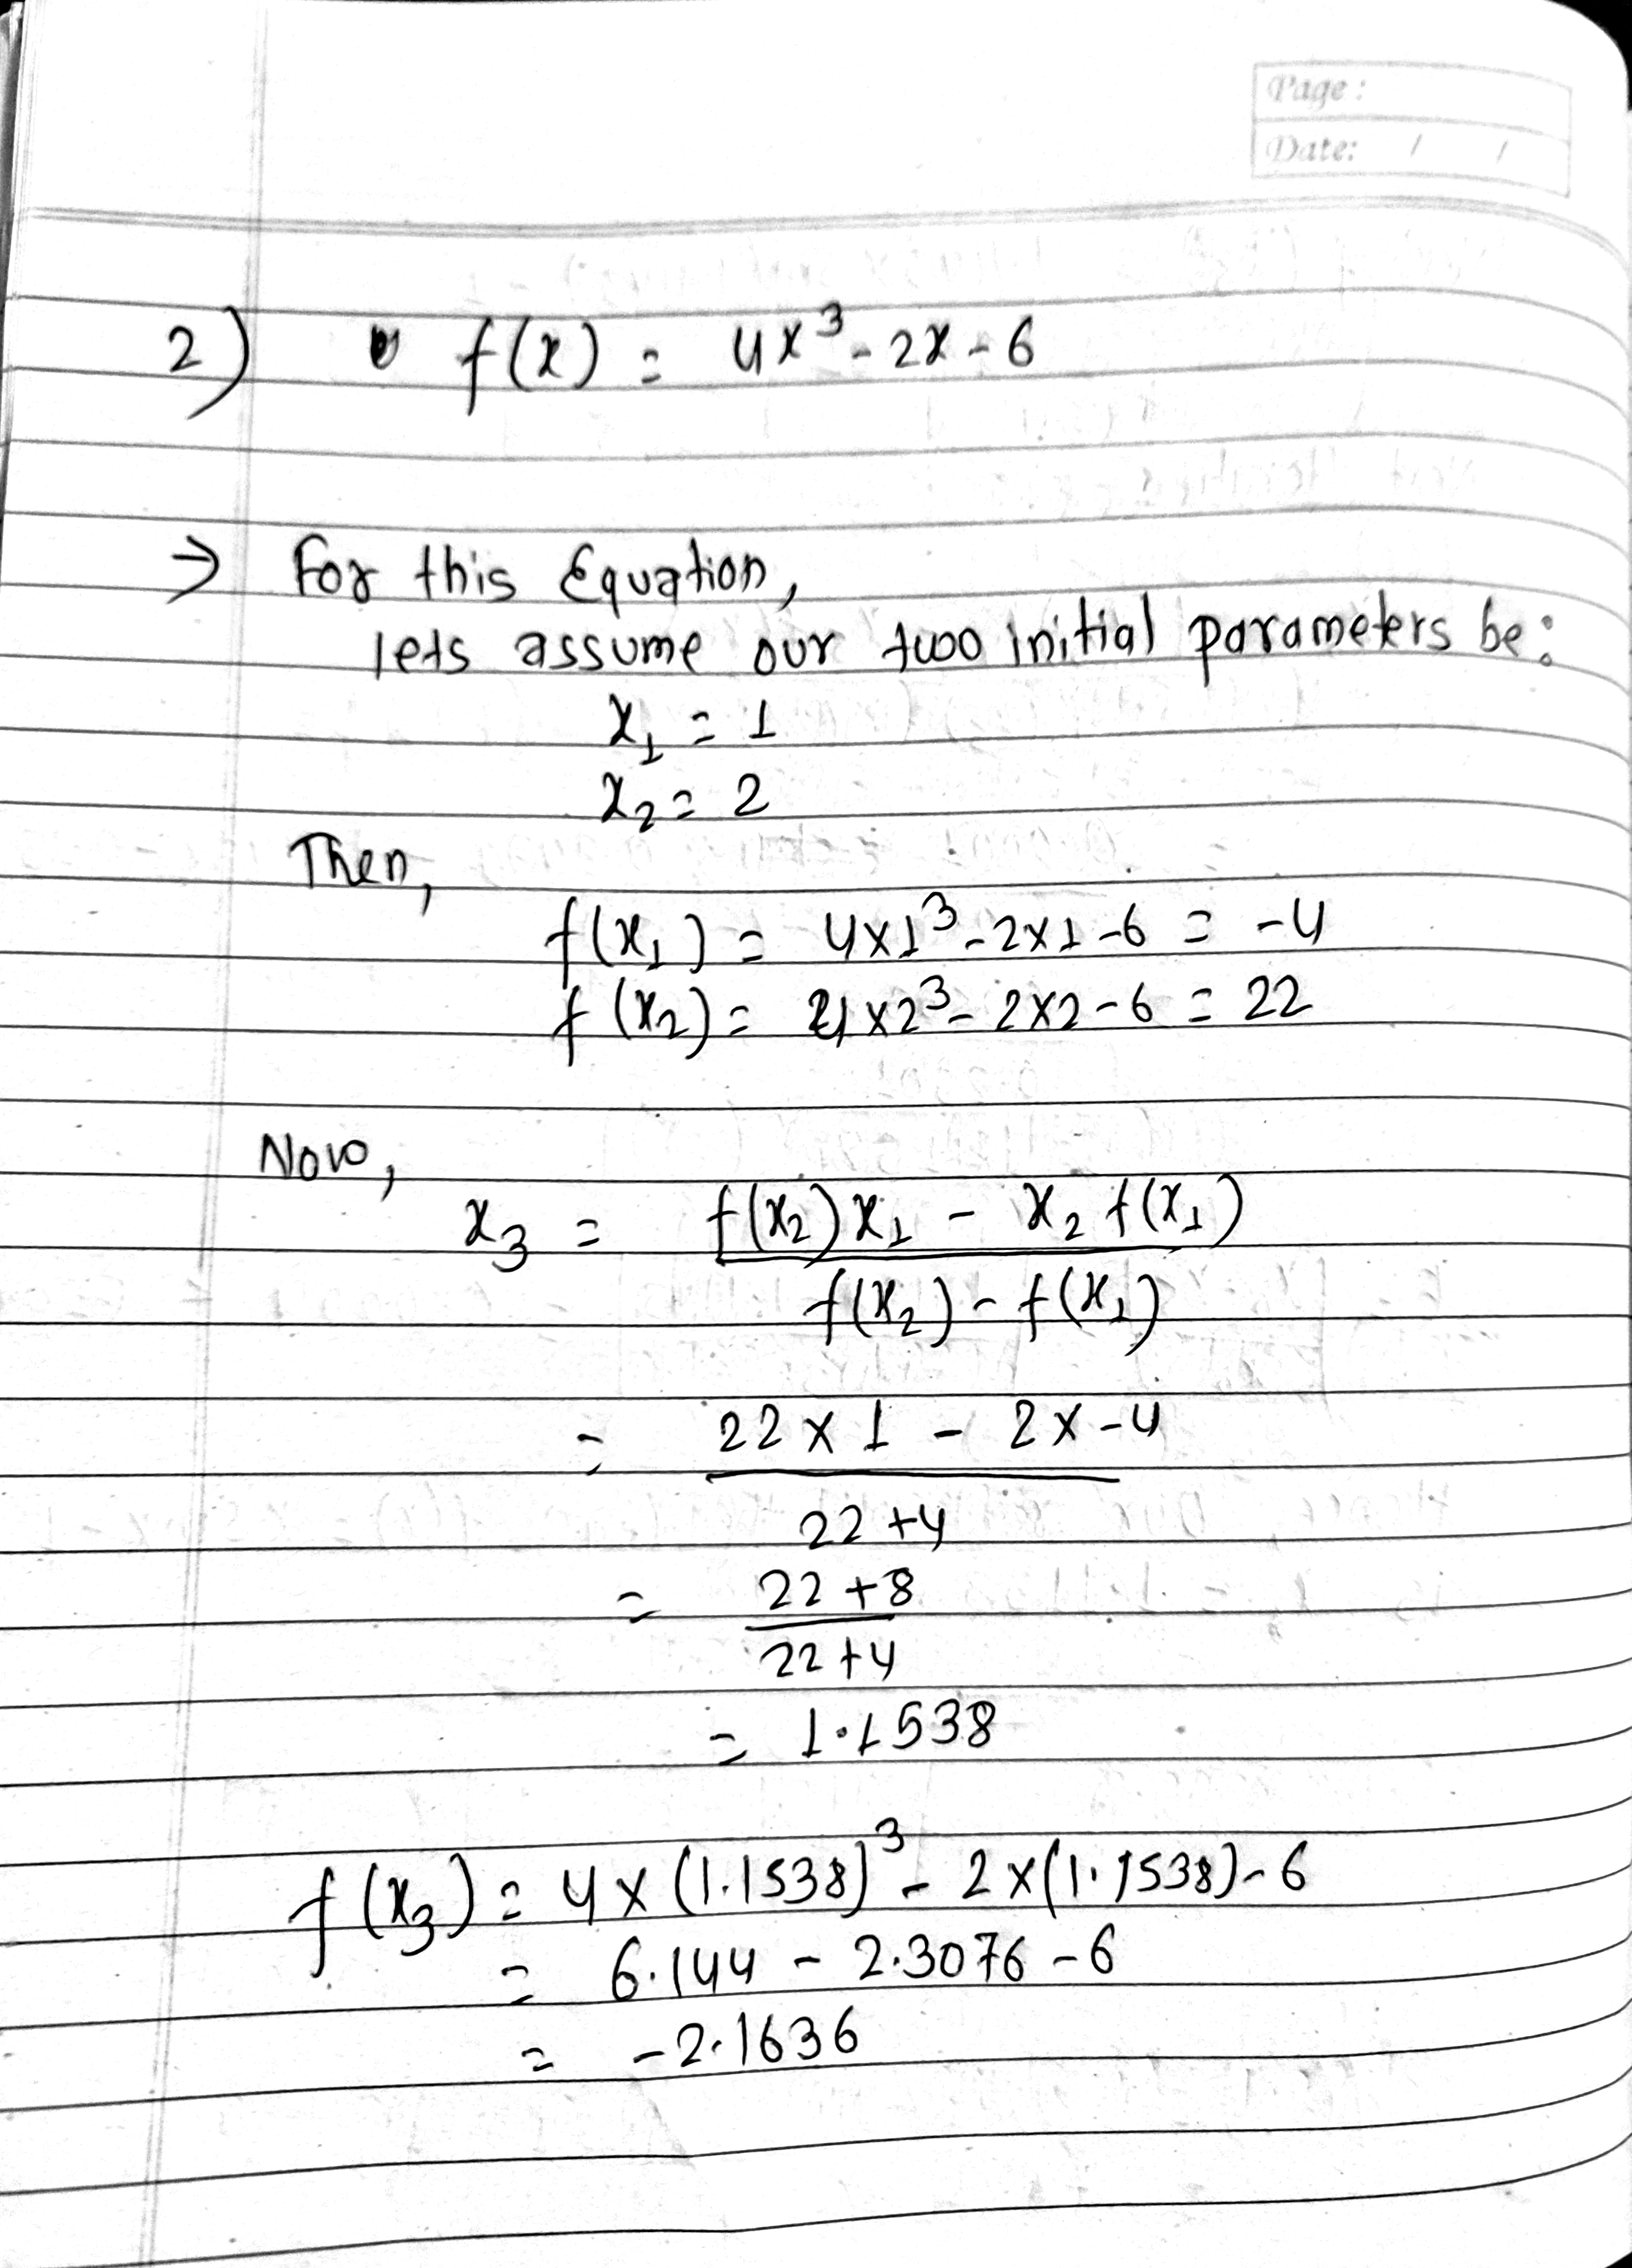 Page:
Date: / /
2) f(x) = 4x³ - 2x - 6
⇒ For this Equation,
lets assume our two initial parameters be:
x₁ = 1
x₂ = 2
Then,
f(x₁) = 4×1³ - 2×1 - 6 = -4
f(x₂) = 4×2³ - 2×2 - 6 = 22
Now,
x₃ = f(x₂)x₁ - x₂f(x₁)
f(x₂) - f(x₁)
= 22 × 1 - 2 × -4
22 + 4
= 22 + 8
22 + 4
= 1.1538
f(x₃) = 4 × (1.1538)³ - 2 × (1.1538) - 6
= 6.144 - 2.3076 - 6
= -2.1636